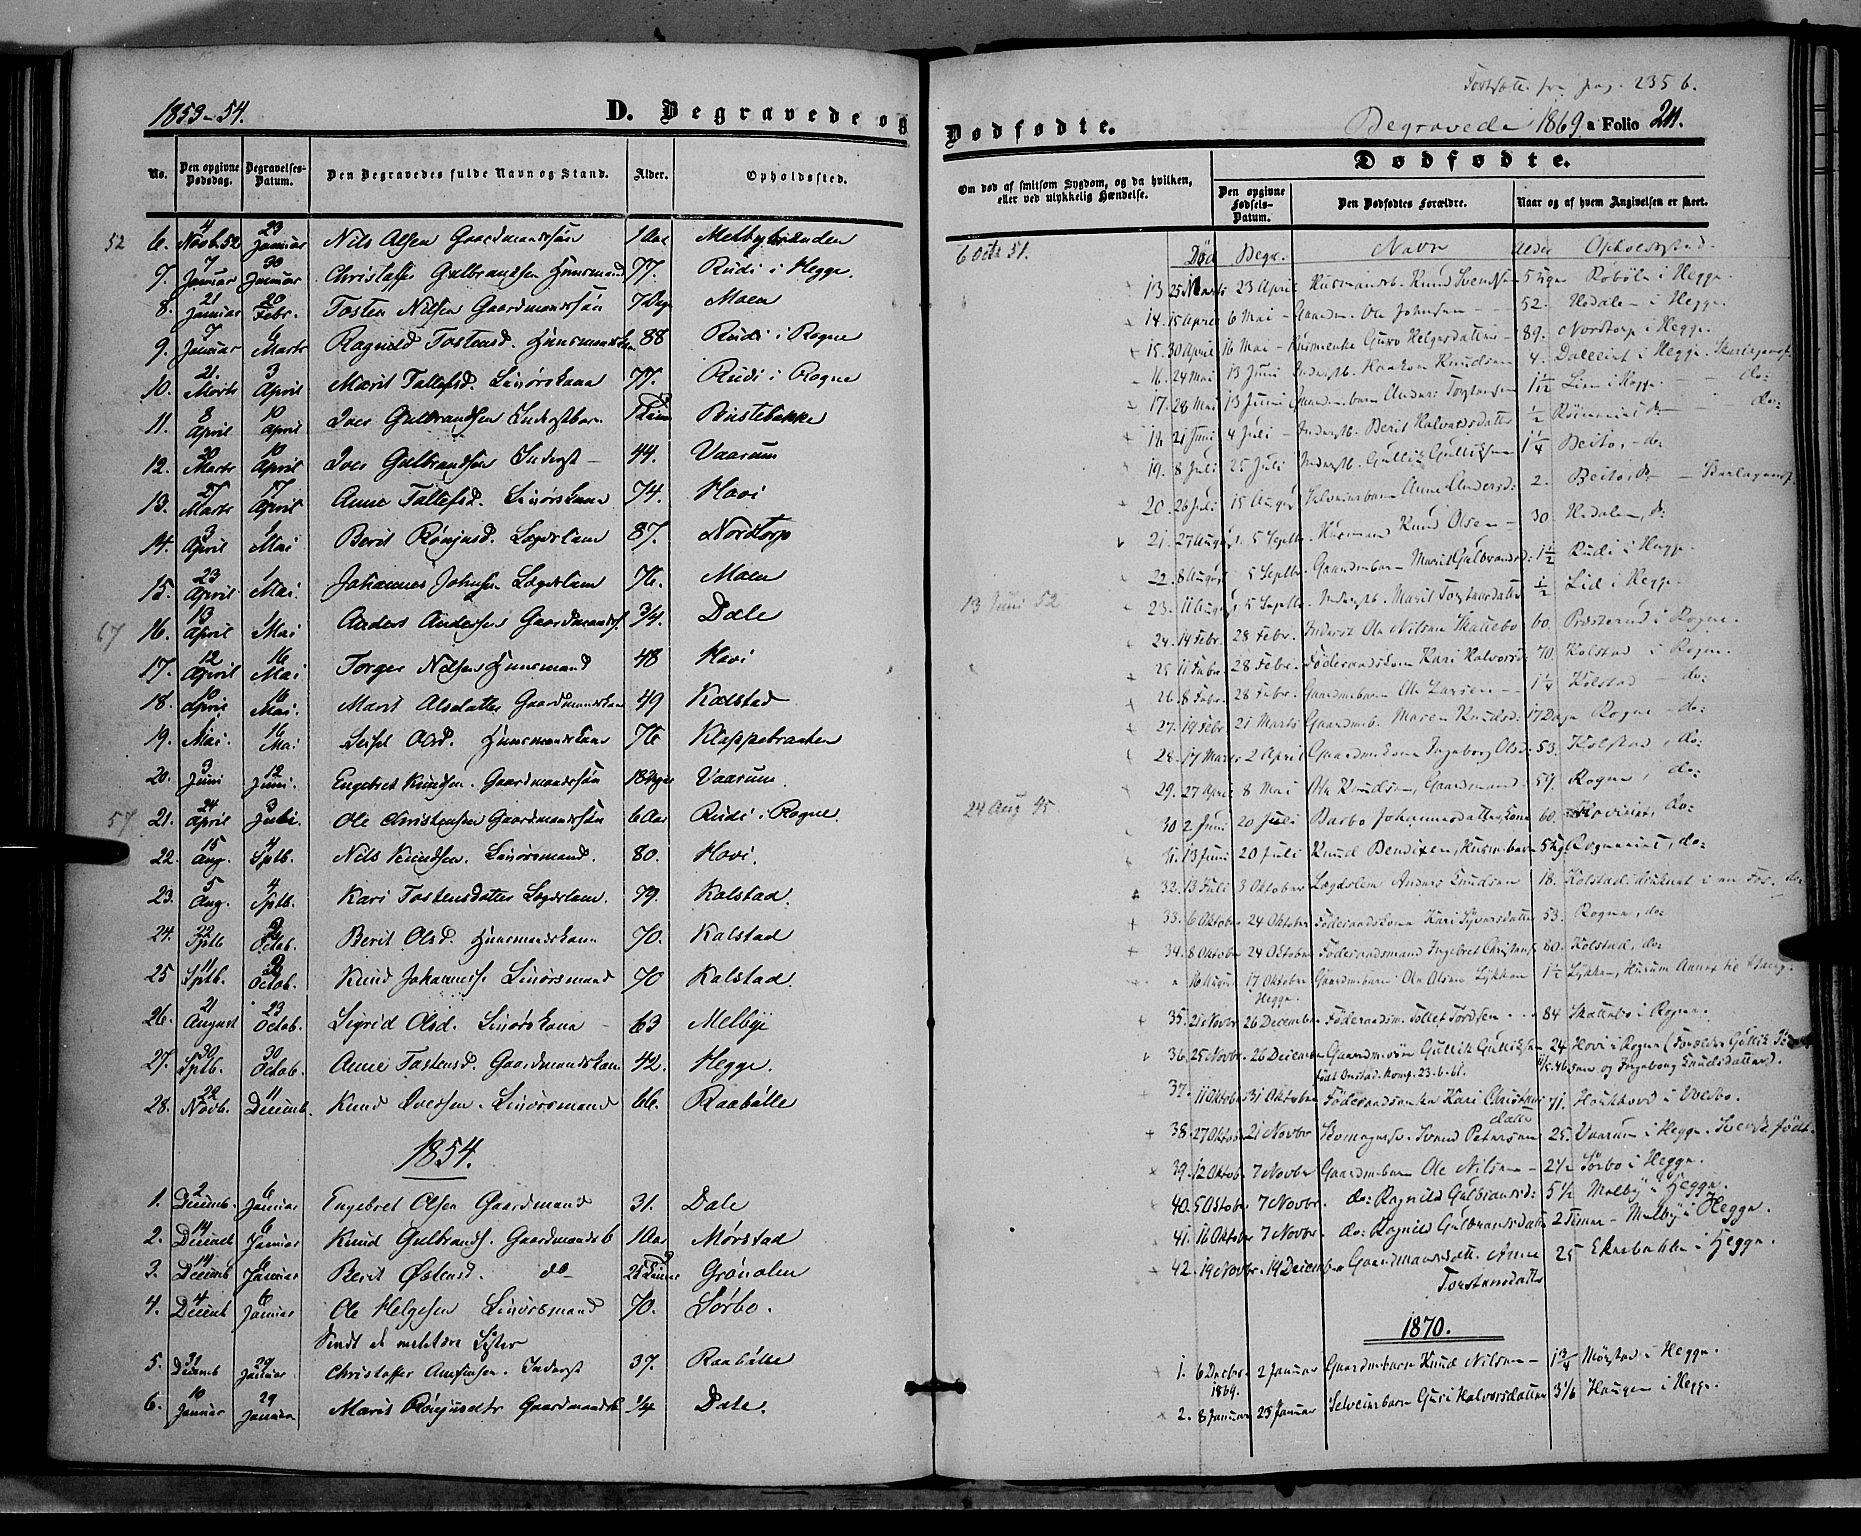 1853-54.
D. Begravede og
No.
Den opgivne Dødsdag.
Begravelses-Datum.
Den Begravedes fulde Navn og Stand.
Alder.
Opholdssted.
52 6. 4 Novb. 52 23 Januar Nils Olsen Gaardmandssøn 1 Aar Melbybraaden
7. 7 Januar 30 Januar Christoffer Gulbrandsen Huusmand 77. Rudi i Hegge.
8. 21 Januar 20 Febr. Tosten Nilsen Gaardmandssøn 7 Dage Moen
9. 7 Januar 6 Marts Ragnild Tostensd. Huusmandskone 88 Rudi i Rogne
10. 21. Marts 3 April Marit Tollefsd. Lørskone 77. Rudi i Rogne
11. 8 April 10 April Iver Gulbrandsen Inderstbarn Bustebakke
12. 30 Marts 10 April Iver Gulbrandsen Inderst 44. Vaarum
13. 27 Marts 17 April Anne Tollefsd. 74. Hovi
14. 3 April Mai Berit Rønjusd. Lægdslem 87. Nordtorp
15. 23 April 1 Mai. Johannes Johnsen Lægdslem 76. Moen
67 16. 13 April 1 Mai Anders Andersen Gaardmandss. 3/4. Dale
17. 12 April 16 Mai Torger Nilsen Huusmand 48 Hovi
18. 10 April 16 Mai. Marit Olsdatter Gaardmandskone 49 Kolstad
19. Mai. 16 Mai Seisel Olsd. Huusmandskone 76 Klappebraaten
20. 3 Juni 12 Juni. Engebret Knudsen Gaardmandssøn 18 Dage Vaarum
57 21. 24 April 3 Juli. Ole Christensen Gaardmandssøn 6 Aar Rudi i Rogne
22. 15 Aug. 4 Sptb. Nils Knudsen. 80. Hovi.
23. 5 Aug. 4 Sptb. Kari Tostensdatter Lægdslem. 79. Kolstad.
24. 22 Sptb 2 Octob. Berit Olsd. Huusmandskone 70. Kolstad
25 11 Sptb. 2 Octob. Knud Johannes. 70 Kolstad.
26. 21 August 23 Octob. Sigrid Olsd. 63 Melbye
27. 30 Sptb. 30 Octob. Anne Tostensd. Gaardmandskone 42. Hegge.
28. 22 Novb. 11 Decemb. Knud Iversen. 66. Raabølle
1854.
1. 2 Decemb. 6 Januar Engebret Olsen Gaardmand 31. Dale
2. 14 Decemb 6 Januar Knud Gulbrands. Gaardmandsb 1 Aar Mørstad
3. 14 Decemb 6 Januar Berit Østensd. do 2 Grønolen
4. 4 Decemb 6 Januar Ole Helgesen 70. Sørbo.
5. 31 Decemb 29 Januar Christoffer Inderst 37. Raabølle
6. 10 Januar 29 Januar Marit Rønjusdtr Gaardmandsb 1/4 Dale.
Fortsatte fra pag. 235 b.
Dødfødte.
Begravede 1869 a Folio 211.
Om død af smitsom Sygdom, og da hvilken, eller ved ulykkelig Hændelse.
Dødfødte.
Den opgivne Fødsels-Datum.
Den Dødfødtes Forældre.
Naar og af hvem Angivelsen er skeet.
6 Octb 51.
Død Begr. Navn Alder Opholdssted.
13 25 Marts 23 April Husmandsb. Knud Svendsen 5 Uger Røbøle i Hegge
14. 15 April 6 Mai - Gaardm. Ole Johnsen 52. Hedalen i Hegge.
15. 30 April 16 Mai - Husmenke Guro Helgesdatter 89. Nordtorp i Hegge.
16. 24 Mai 13 Juni Inderstb. Haakon Knudsen 4. i Hegge. Skarlagensf.
17. 28 Mai 13 Juni Gaardm.barn Anders Torstensen 1 1/12 Lien i Hegge. - do:
18. 21 Juni 4 Juli - Inderstb. Berit Halvorsdatter 1/2 do:
19. 8 Juli 25 Juli Inderstb. Gullik Gulliksen 1 1/4 Beito, - do
20. 26 Juli 15 August Selveierbarn Anne Andersd: 2. Beito, do - Skarlagensf.
21. 27 August 5 Septbr. Husmand Knud Olsen - 30. Hedalen, do
22. 8 August 5 Septbr. Gaardm.barn Marit Gulbrandsd: 1 1/2 Rudi i Hegge.
13 Juni 52
23. 11 August 5 Septbr. Inderstb. Marit Torstensdatter 1/2 Lid i Hegge.
24. 14 Febr. 28 Febr. Inderst Ole Nilsen Skattebo 60. Præsterud i Rogne.
25 11 Febr. 28 Febr. Føderaadskone Kari Halvorsd 70. Kolstad i Rogne.
26. 8 Febr. 28 Febr. Gaardm.barn Ole Larsen - 1 1/4 Kolstad - do:
27. 19 Febr 21 Marts Gaardm.b. Maren Knudsd: 17 Dage Rogne - do:
28. 17 Marts 2 April Gaardm.kone Ingeborg Olsd: 53. Kolstad, do:
29. 27 April 8 Mai Ole Knudsen, Gaardmand 59. Rogne, do:
24 Aug 45
30 2 Juni 20 Juli Barbo Johannesdatter, kone 60. do:
31. 13 Juni 20 Juli Knud Bendixen, Husm.barn 5 Uger do:
32. 13 Juli 3 Oktober Lægdslem Anders Knudsen 18. Kolstad, druknet i en Fos. do:
33. 6 Oktober 24 Oktober Føderaadskone Kari Syversdatter 53. Rogne, do:
34. 8 Oktober 24 Oktober Føderaadsmand Ingebret Christens. 80. Kolstad, do:
" 16 August 17 Oktober Hegge. Gaardm.barn Ole Olsen Lykken 1 1/2 Lykken, Hurum Annex til Vang.
35. 21 Novbr 26 December Føderaadsm. Tollef Tordsen 84 Skattebo i Rogne.
36. 25 Novbr. 26 December Gaardm.søn Gullik Gulliksen 24 Hovi i Rogne (Forældre Gullik
født Onstad. Konf. 23.6.61. 11/5.46. sen og Ingeborg Knudsdatter).
37. 11 Oktober 31 Oktober Føderaadsenke Kari Christens datter 71. i Volbo.
38. 27 Oktob. 21 Novbr Skomagersv. Svend Petersen 25. Vaarum i Hegge. Svensk født.
39. 12 Oktob 7 Novbr Gaardm.barn Ole Nilsen - 2 1/2 Sørbo i Hegge.
40. 5 Oktober 7 Novbr. do: Ragnild Gulbrandsd: 5 1/2 Melby i Hegge.
41. 16 Oktober 7 Novbr. do: Ragnild Gulbrandsdatter 2 Timer - Melby i Hegge.
42. 19 Novbr. 19 December Gaardmandsdatt. Anne Torstensdatter 25 Ekrebakken i Hegge.
1870.
1. 6 Decbr. 1869. 2 Januar Gaardm.barn Knud Nilsen - 1 3/4 Mørstad i Hegge.
2. 8 Januar 23 Januar Selveierbarn Guri Halvorsdatter 3 1/6 Haugen i Hegge.